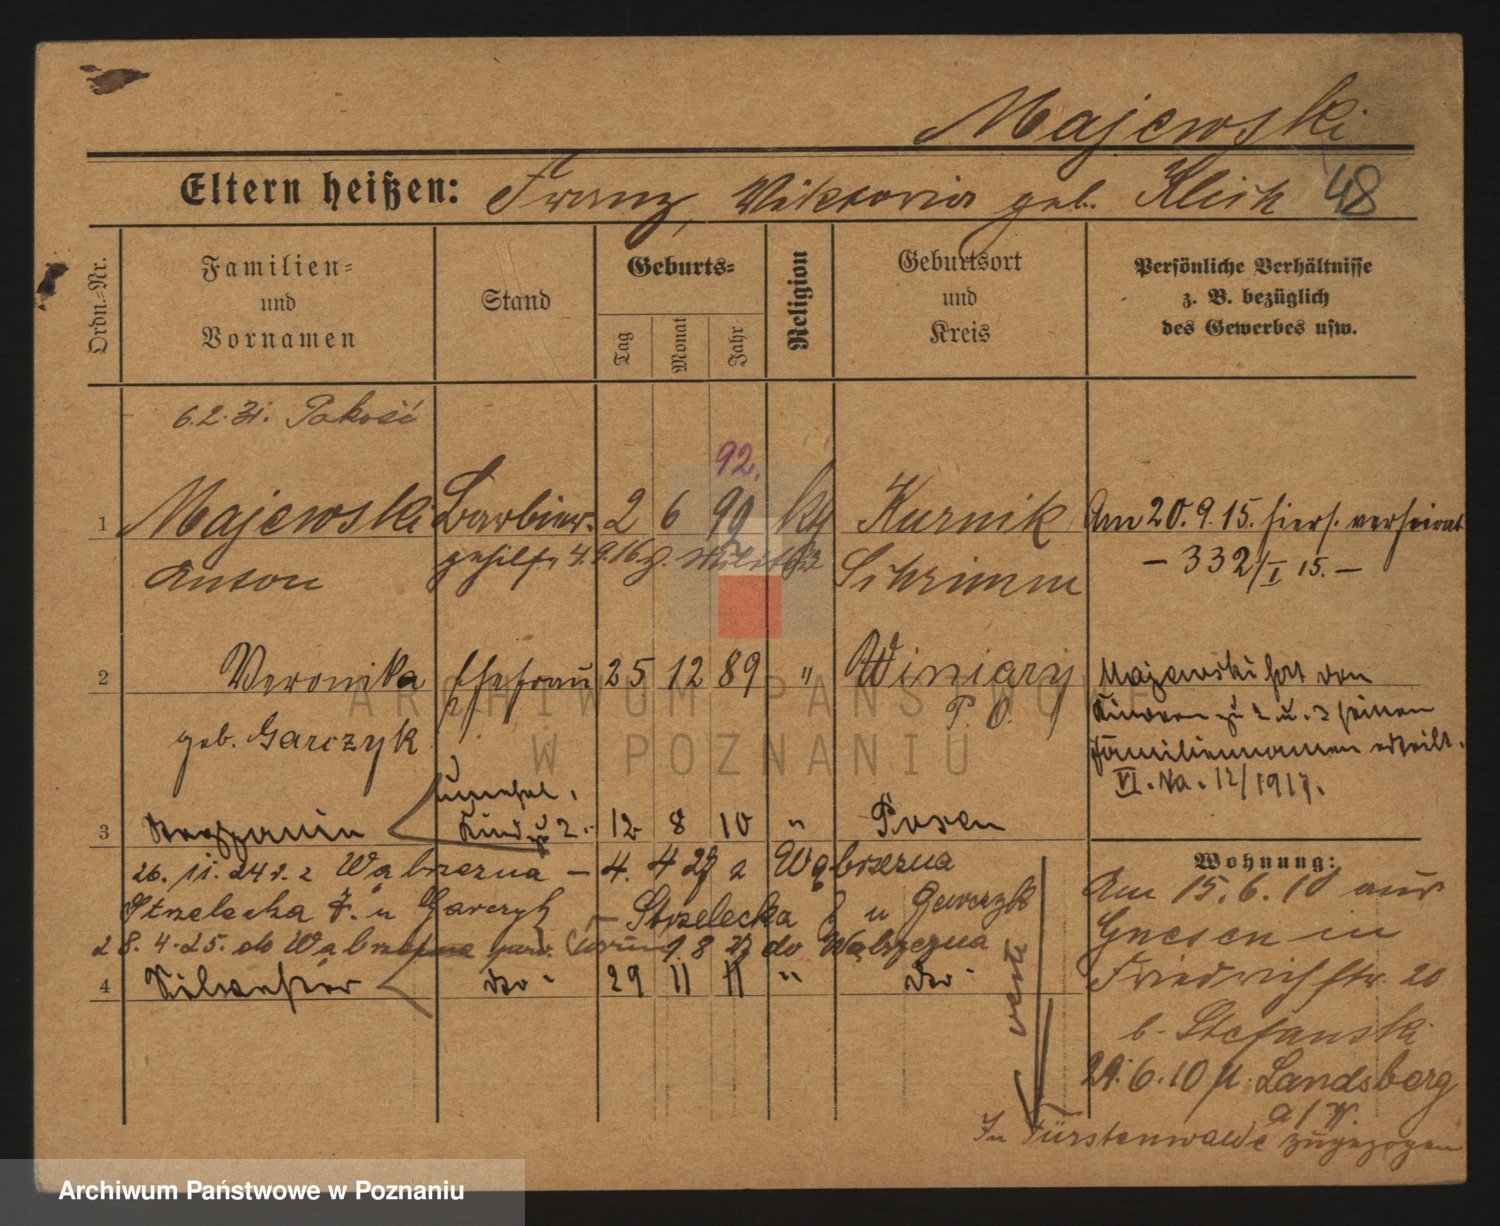 Majewski
Eltern heißen: Franz, Viktoria geb. Klick 48
Ordn.=Nr.
Familien=
und
Vornamen
Stand
Geburts=
Tag
Monat
Jahr
Religion
Geburtsort
und
Kreis
Persönliche Verhältnisse
z. B. bezüglich
des Gewerbes usw.
6.2.31. Pakość
92.
1 Majewski Barbier- 2 6 90 kg Kurnik Am 20.9.15. hiers. verheirat
Anton gehilfe Schrimm
- 332/I 15. -
2 Veronika Ehefrau 25 12 89 " Winiary
P. O.
geb. Garczyk
Majewski hat den
Kindern zu 2 u. 3 seinen
Familiennamen erteilt.
VI. Na. 12/1917.
unehel.
3 Kind zu 2. 12 8 10 " Posen
26. 11. 24 Wąbrzezna - 4. 4 27 z Wąbrzezna
Strzelecka 7. u Garczyk - Strzelecka 7 u Garczyk
28. 4. 25. do Wąbrzezna 9 8 27 do Wąbrzezna
4 Silvester do - 29 11 11 " do -
Wohnung:
Am 15.6.10 aus
Gnesen in
Friedrichstr. 20
b. Stefanski
29.6.10 n. Landsberg
a/W.
In Fürstenwalde zugezogen
verte
ARCHIWUM PAŃSTWOWE
W POZNANIU
Archiwum Państwowe w Poznaniu